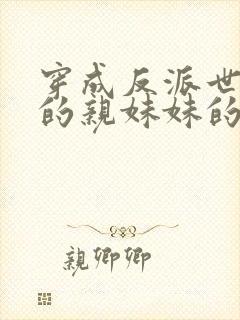 穿成反派世
的親妹妹的
親卿卿